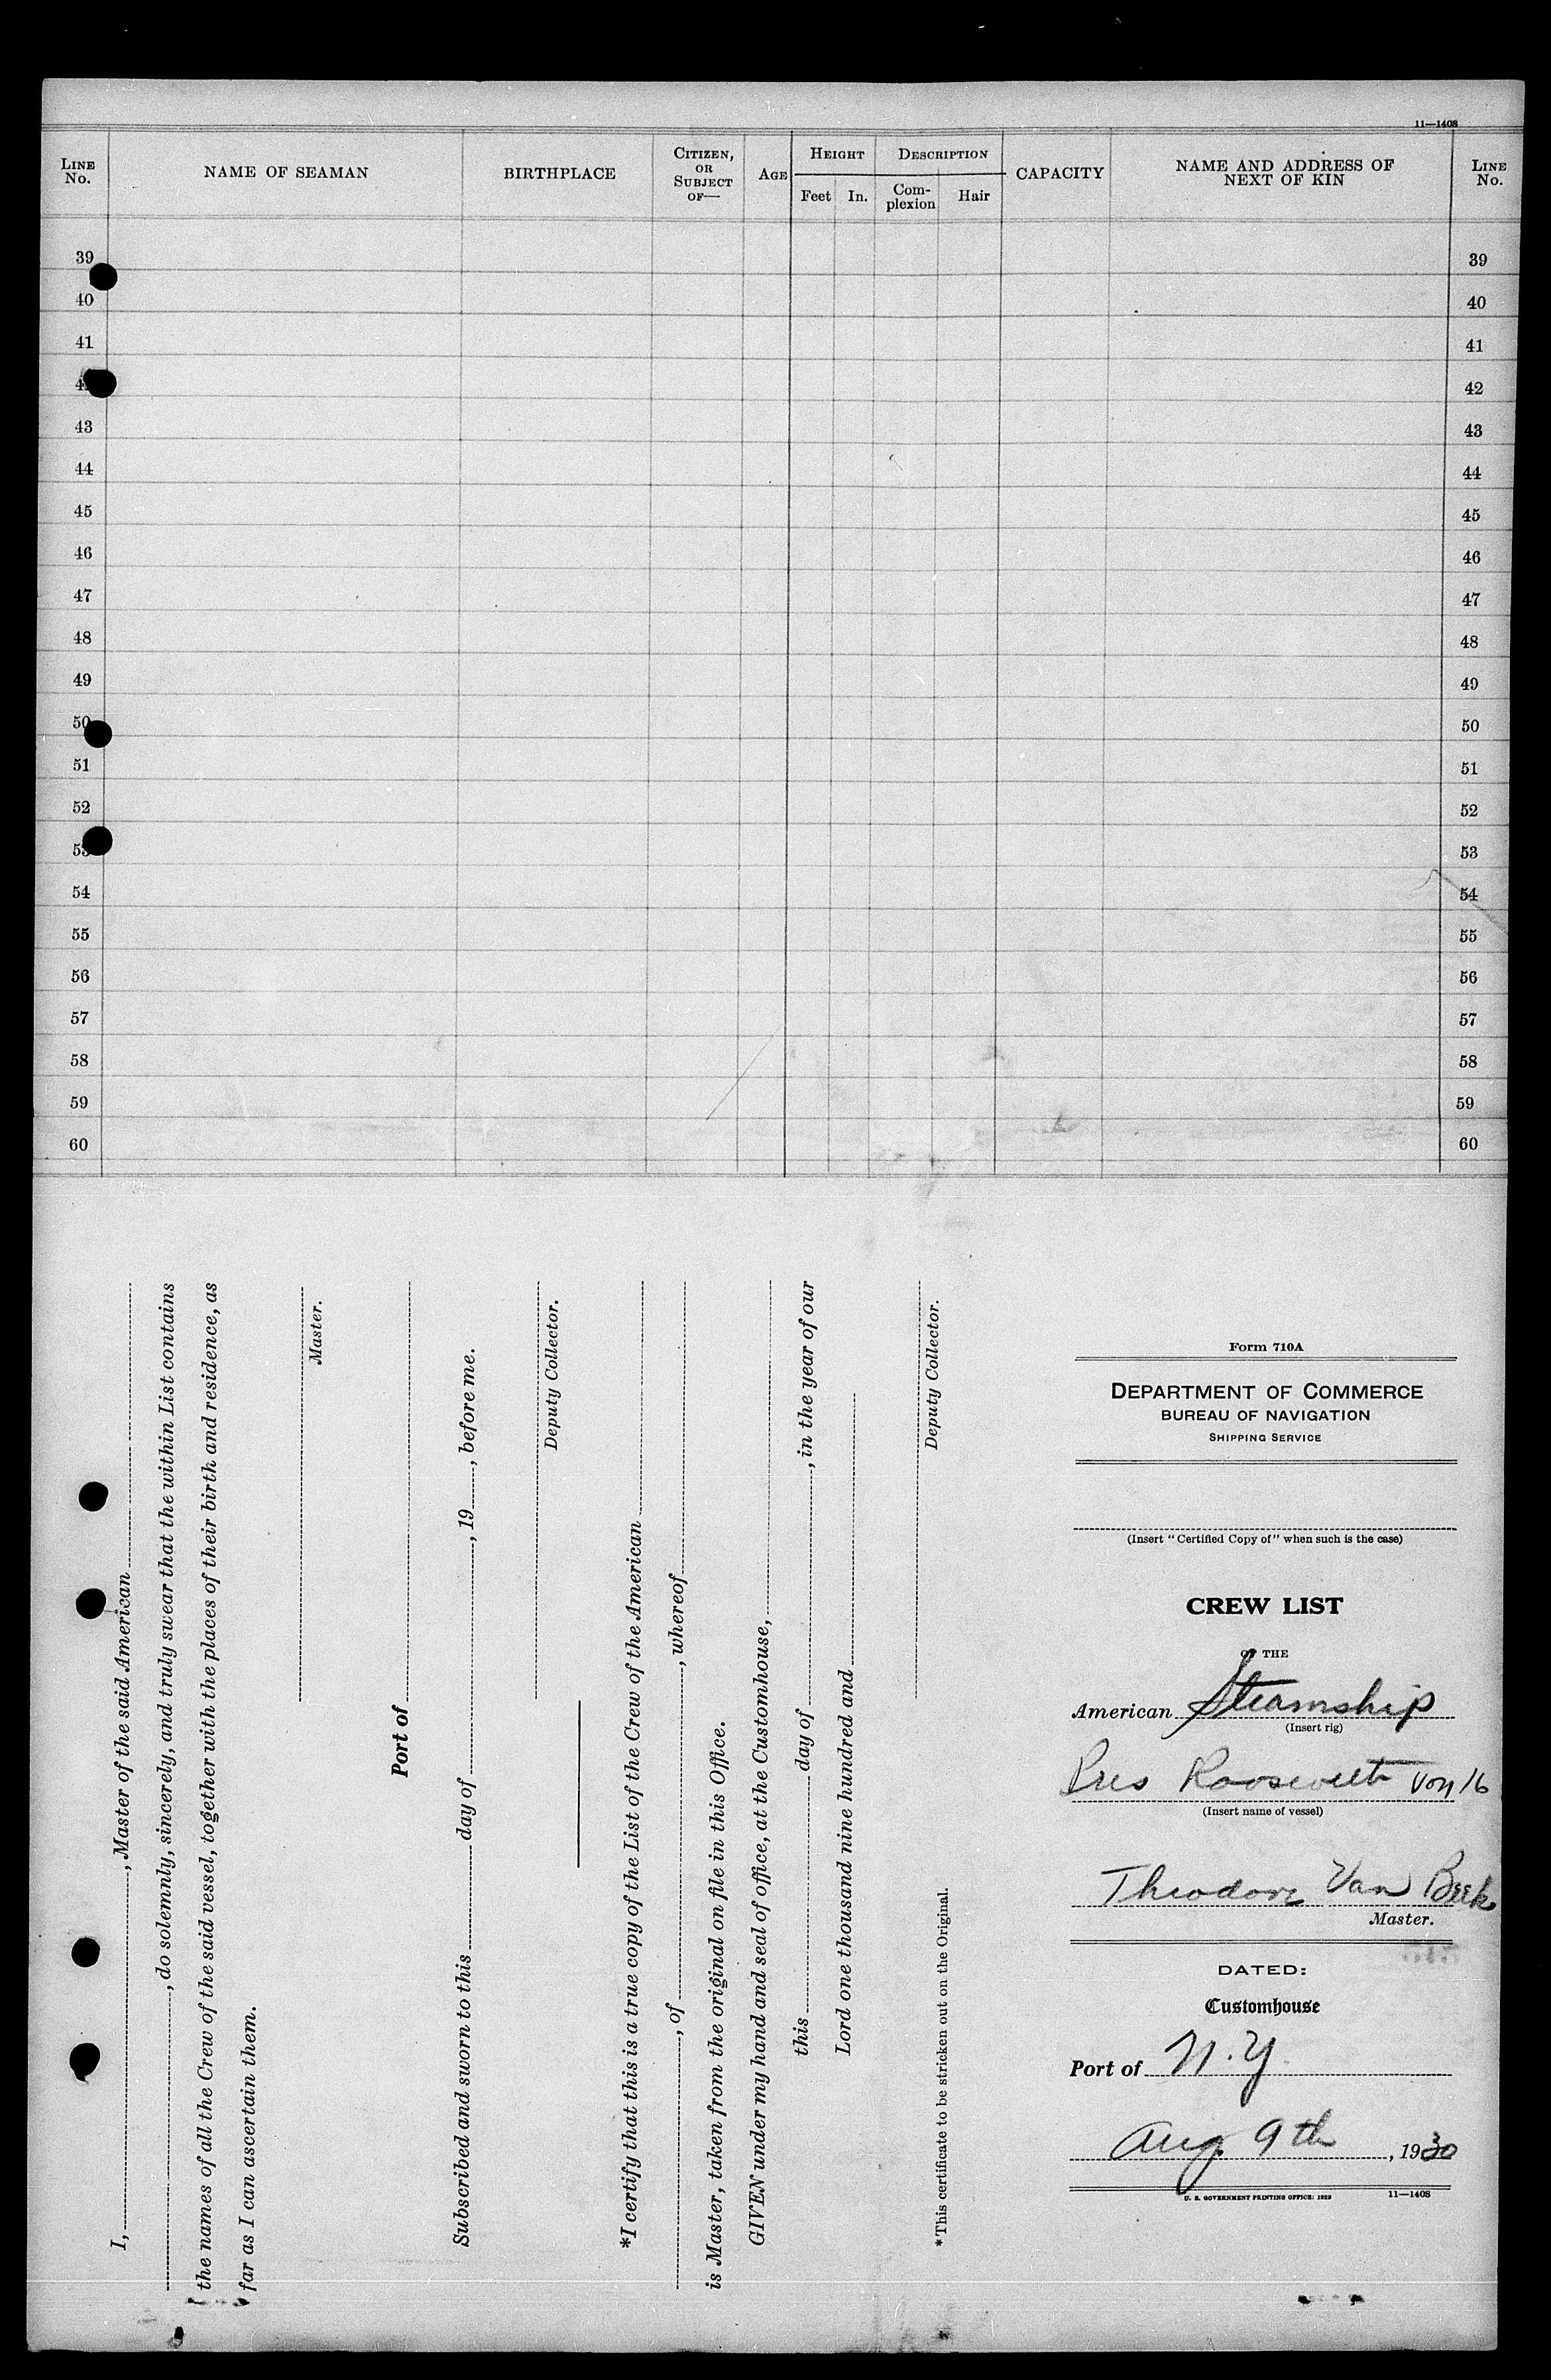 11—1408
LINE No. NAME OF SEAMAN BIRTHPLACE CITIZEN, OR SUBJECT OF— AGE HEIGHT DESCRIPTION CAPACITY NAME AND ADDRESS OF NEXT OF KIN LINE No.
Feet In. Complexion Hair
39 39
40 40
41 41
42
43 43
44 44
45 45
46 46
47 47
48 48
49 49
50 50
51 51
52 52
53 53
54 54
55 55
56 56
57 57
58 58
59 59
60 60
I, , Master of the said American
, do solemnly, sincerely, and truly swear that the within List contains
the names of all the Crew of the said vessel, together with the places of their birth and residence, as
far as I can ascertain them.
Master.
Port of
Subscribed and sworn to this day of , 19 , before me.
Deputy Collector.
*I certify that this is a true copy of the List of the Crew of the American
, of , whereof
is Master, taken from the original on file in this Office.
GIVEN under my hand and seal of office, at the Customhouse,
this day of , in the year of our
Lord one thousand nine hundred and
Deputy Collector.
*This certificate to be stricken out on the Original.
Form 710A
DEPARTMENT OF COMMERCE
BUREAU OF NAVIGATION
SHIPPING SERVICE
(Insert "Certified Copy of" when such is the case)
CREW LIST
OF THE
American Steamship
(Insert rig)
Pres Roosevelt Voy 16
(Insert name of vessel)
Theodore Van Beek
Master.
DATED:
Customhouse
Port of N.Y
Aug. 9th , 1930
U. S. GOVERNMENT PRINTING OFFICE: 1929 11—1408